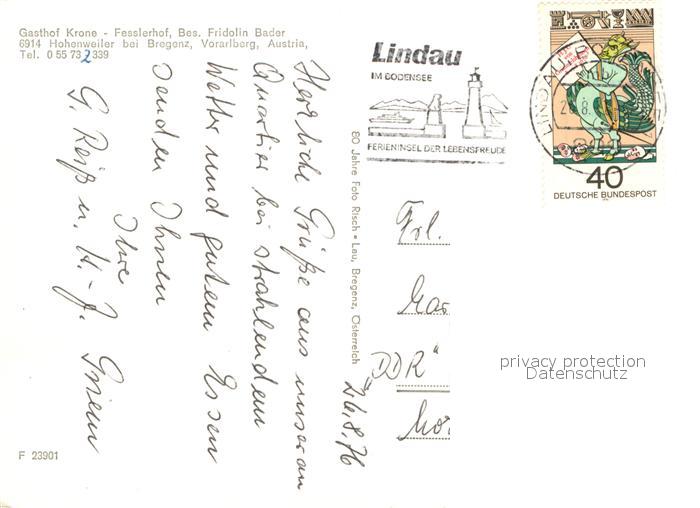 Gasthof Krone - Fesslerhof, Bes. Fridolin Bader
6914 Hohenweiler bei Bregenz, Vorarlberg, Austria,
Tel. 0 55 73 2 339
Herzliche Grüße aus unserem
Quartier bei strahlendem
Wetter und gutem Essen
senden Ihnen
Ihre
G. Reiß u. H.-J.
26.8.76
80 Jahre Foto Risch • Lau, Bregenz, Österreich
F 23901
Lindau
IM BODENSEE
FERIENINSEL DER LEBENSFREUDE
LINDAU
40
DEUTSCHE BUNDESPOST
Frl.
"DDR"
privacy protection
Datenschutz